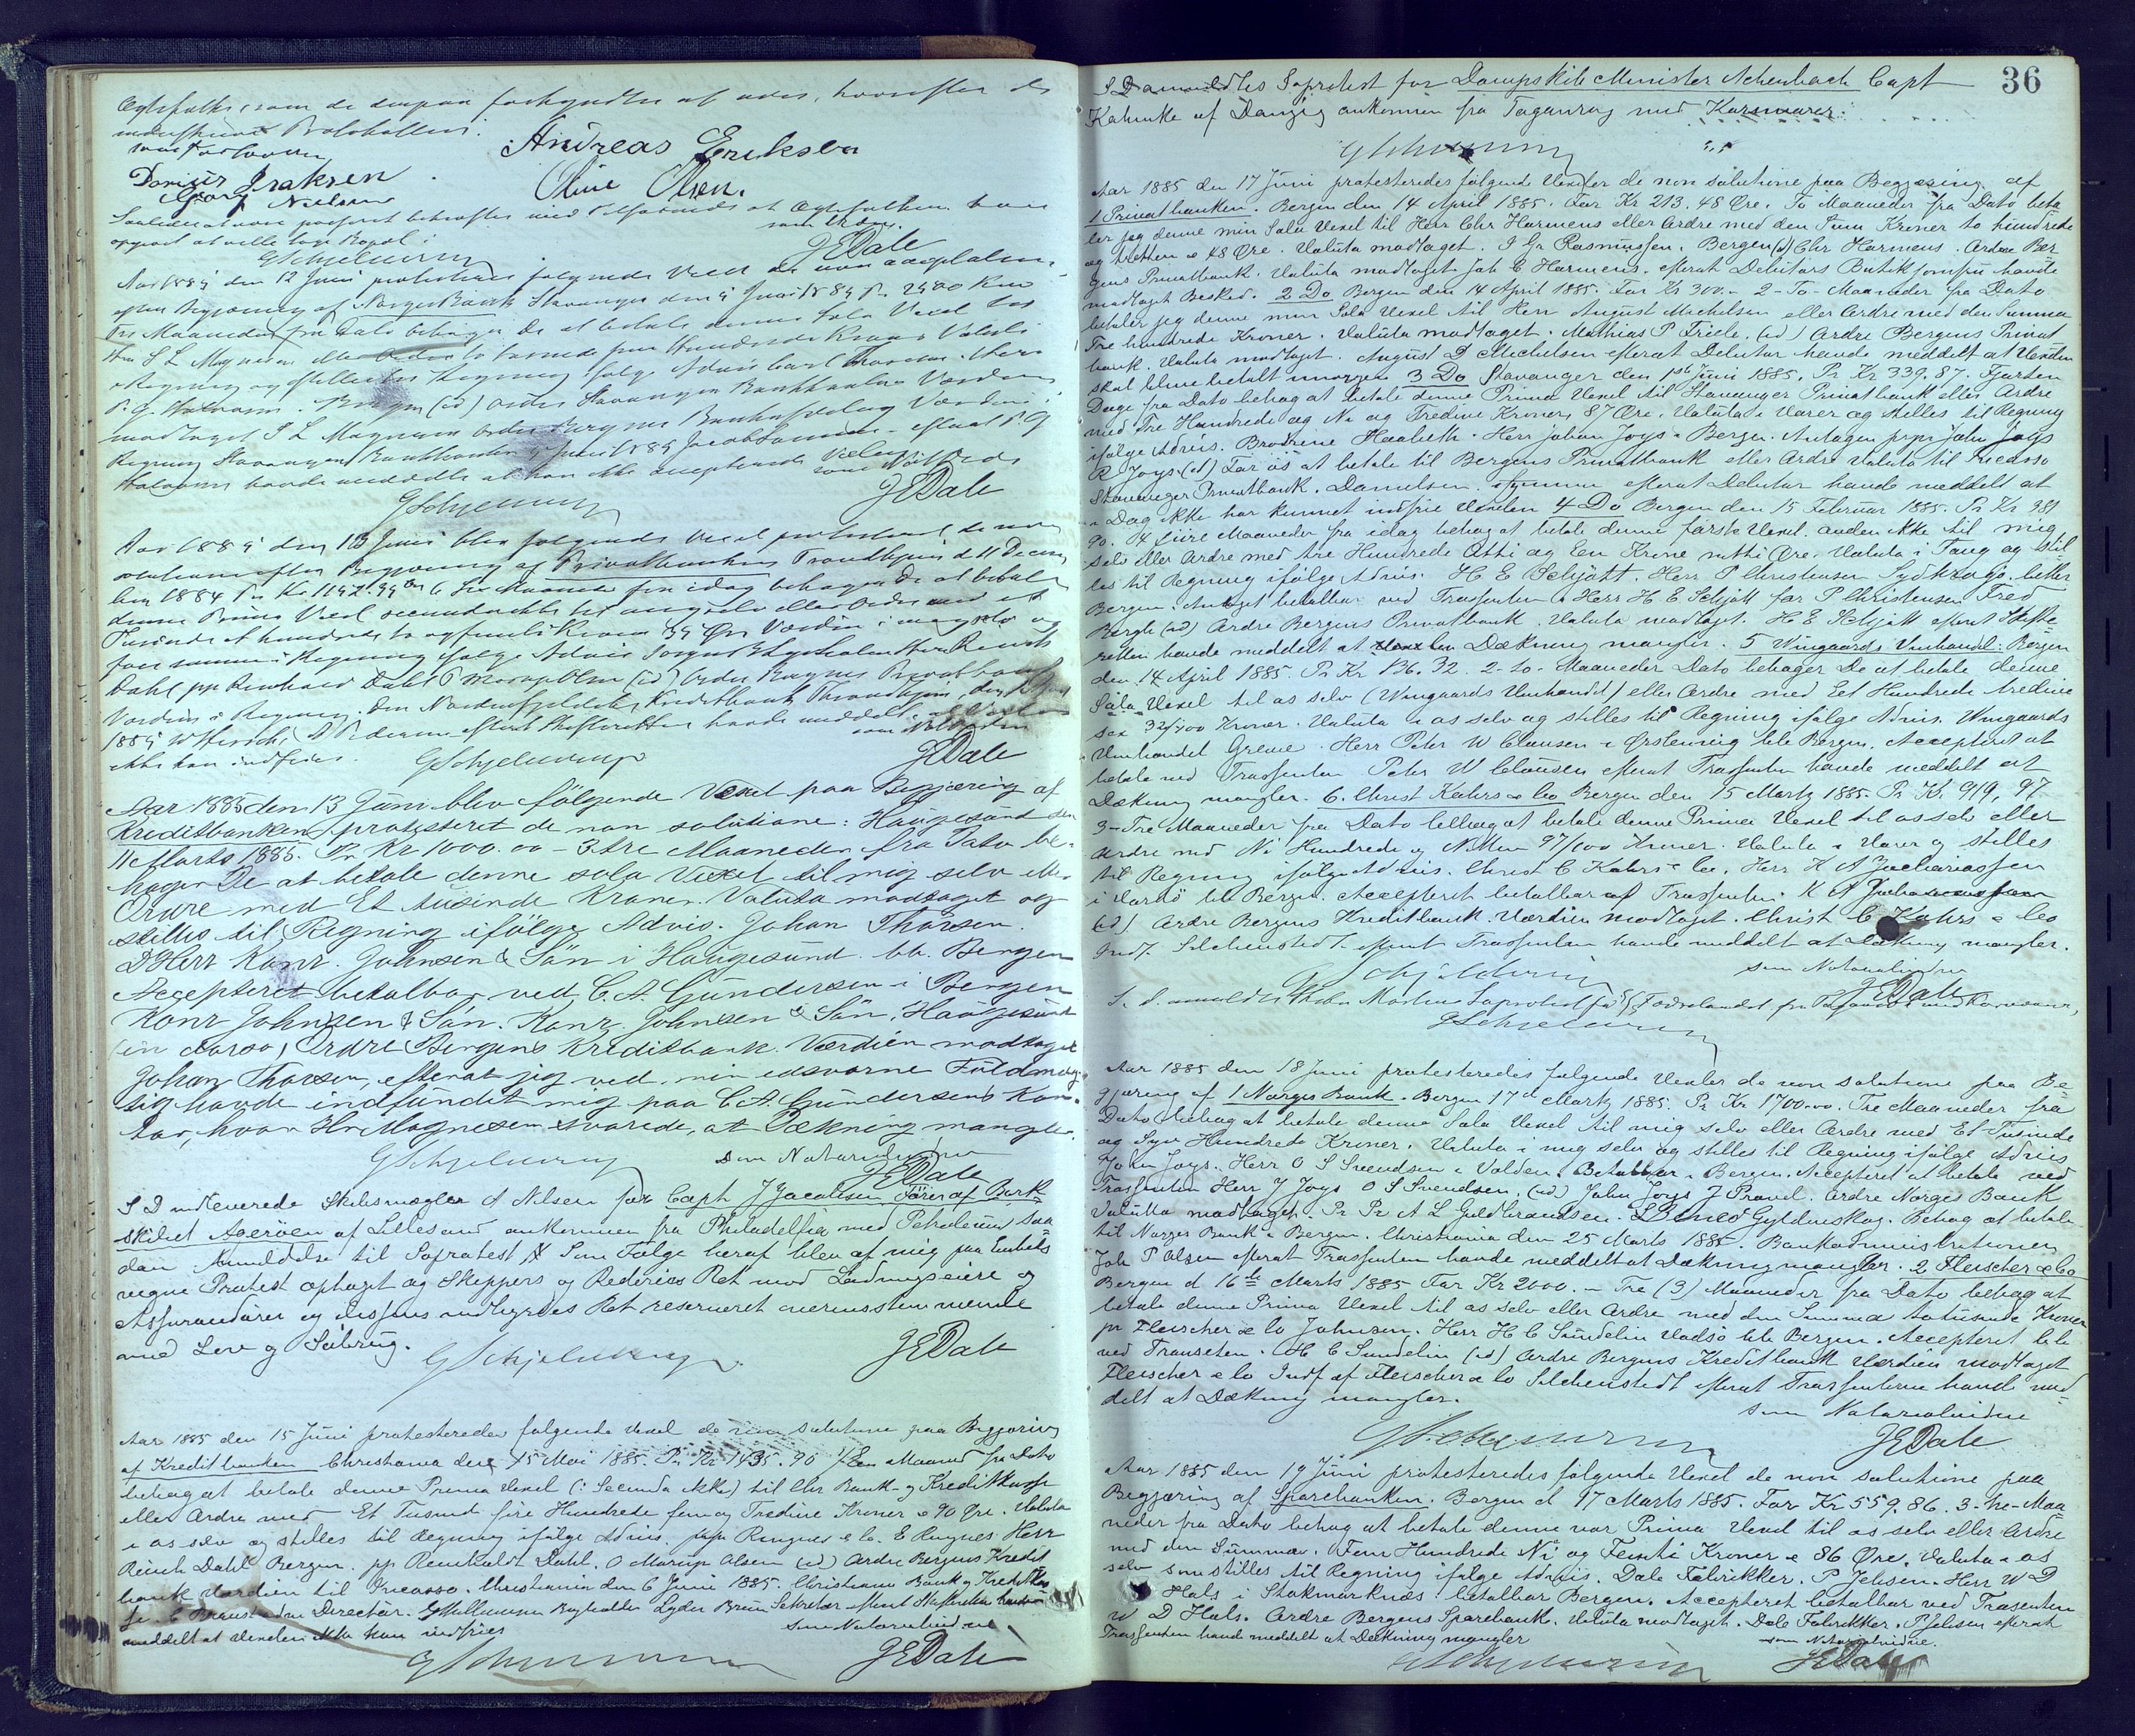 Ægtefolks, som de derpaa forkyndtes af
underskrives Protokollen.
som Forlovere
Andreas Eriksen
Daniel Isaksen
Oline Olsen.
Georg Nielsen
opgivet at ville tage Bopæl i
som Vidne.
GSchjelderup
JEDale
Aar 1885 den 12 Juni protesteredes følgende Vexel de non acceptatione
efter Begjæring af Norges Bank Stavanger den 5 Juni 1885 Pr. 2500 Kr
Tre Maaneder fra Dato behager De at betale denne Sola Vexel til
Hrr S L Magnesen eller Ordre to tusinde fem Hundrede Kroner Valuta
i Regning og stilles til Regning ifølge Advis
P. G. Halvorsen. Bergen (id) Ordre Stavanger Bankkontor Værdien
modtaget S L Magnesen Ordre Bergens Bankafdeling Værdien i
Regning Stavanger Bankkontor Juni 1885 Jacob efterat P. G
Halvorsen havde meddelt at han ikke accepterede Vexlen
GSchjelderup
JEDale
Aar 1885 den 13 Juni blev følgende Vexel protesteret de non
solutione efter Begjæring af Privatbanken Trondhjem d 11 Decem
ber 1884 Pr Kr 1152.39 Øre 6 Sex Maaneder fra idag behager De at betale
denne Prima Vexel secunda ikke til mig selv eller Ordre med et
Tusinde et hundrede to og femti Kroner 39 Øre Værdien i mig selv og
føres samme i Regning ifølge Advis Herr Reinh
Dahl pp Reinhard Dahl O Marup Olsen (id) Ordre Bergens Privatbank
Værdien i Regning. Den Nordenfjeldske Kreditbank Trondhjem den
1885 efterat Skifteretten havde meddelt at Vexlen
ikke kan indfries.
GSchjelderup
JEDale
Aar 1885 den 13 Juni blev følgende Vexel paa Begjæring af
Kreditbanken protesteret de non solutione: Haugesund den
11 Marts 1885. Pr Kr 1000.00 – 3 tre Maaneder fra Dato be-
hager De at betale denne sola Vexel til mig selv eller
Ordre med Et tusinde Kroner. Valuta modtaget og
stilles til Regning ifølge Advis. Johan Thorsen.
D Herr Konr. Johnsen & Søn i Haugesund. bb. Bergen
Accepteret betalbar ved C. A. Gundersen i Bergen
Konr Johnsen & Søn. Konr. Johnsen & Søn, Haugesund
(in dorso) Ordre Bergens Kreditbank. Værdien modtaget
Johan Thorsen, efterat jeg ved min edsvorne Fuldmæg-
tig havde indfundet mig paa C. A. Gundersens Kon-
tor, hvor Hr Magnesen svarede, at Dækning mangler.
GSchjelderup
som Notarialvidne
JEDale
S D indleverede Skibsmægler A Nilsen for Capt J Jacobsen Fører af Bark-
skibet Agerøen af Lillesand ankommen fra Philadelfia med Petroleum saa
dan Anmeldelse til Søprotest, Som Følge heraf blev af mig paa Embeds
vegne Protest optaget og Skippers og Rederiets Ret mod Ladningseiere og
Assurandører og disses indbyrdes Ret reserveret overensstemmende
med Lov og Sædvane.
GSchjelderup
JEDale
Aar 1885 den 15 Juni protesteredes følgende Vexel de non solutione paa Begjæring
af Kreditbanken Christiania den 15 Mai 1885. Pr Kr 1435.90 1/En Maaned fra Dato
behag at betale denne Prima Vexel (: Secunda ikke) til Chr Bank- og Kreditkasse
eller Ordre med Et Tusind fire Hundrede fem og Tredive Kroner & 90 Øre. Valuta
i os selv og stilles til Regning ifølge Advis. ppa Ringnes & Co. E Ringnes Herr
Reinh Dahl Bergen. pp Reinholdt Dahl. O Marup Olsen (id) Ordre Bergens Kredit
bank Værdien til Incasso. Christiania den 6 Juni 1885. Christiania Bank og Kreditkas
se. C Director. Bogholder Sekretær efterat Skifteretten havde
meddelt at Vexlen ikke kan indfries
som Notarialvidne
GSchjelderup
JEDale
36
S D anmeldtes Søprotest for Dampskib Minister Achenbach Capt
Kahnke af Danzig ankommen fra Taganrog med Kornvarer.
GSchjelderup
Aar 1885 den 17 Juni protesteredes følgende Vexler de non solutione paa Begjæring af
1 Privatbanken. Bergen den 14 April 1885. For Kr 213.48 Øre. To Maaneder fra Dato beta
ler jeg denne min Sola Vexel til Herr Chr Harmens eller Ordre med den Sum Kroner to hundrede
og tretten & 48 Øre. Valuta modtaget. I Gr Rasmussen. Bergen (id) Chr Harmens. Ordre Ber
gens Privatbank. Valuta modtaget. Joh C Harmens. efterat Debitors Butikjomfru havde
modtaget Besked. 2 Do Bergen den 14 April 1885. For Kr 300.– 2 – To – Maaneder fra Dato
betaler jeg denne min Sola Vexel til Herr August Michelsen eller Ordre med den Summa
Tre hundrede Kroner. Valuta modtaget. Mathias P Friele. (id) Ordre Bergens Privat
bank. Valuta modtaget. August D Michelsen efterat Debitor havde meddelt at Vexlen
skal blive betalt imorgen. 3 Do Stavanger den 1ste Juni 1885. Pr Kr 339.87. Fjorten
Dage fra Dato behag at betale denne Prima Vexel til Stavanger Privatbank eller Ordre
med Tre Hundrede og Ni og Tredive Kroner 87 Øre. Valuta i Varer og stilles til Regning
ifølge Advis. Brødrene Haabeth. Herr Johan Joys Bergen. Antagen pr pr John Joys
R Joys. (id) For os at betale til Bergens Privatbank eller Ordre Valuta til Incasso
Stavanger Privatbank. Danielsen. efterat Debitor havde meddelt at
i Dag ikke har kunnet indfrie Vexlen 4 Do Bergen den 15 Februar 1885. Pr Kr 381
90. 4 fire Maaneder fra idag behag at betale denne første Vexel anden ikke til mig
selv eller Ordre med tre Hundrede Otti og En Krone nitti Øre. Valuta i Toug og stil
les til Regning ifølge Advis. H E Schjøtt. Herr P Christensen
Bergen. Antaget betalbar ved Trassenten Herr H E Schjøtt for P Christensen Fred
Bergh (id) Ordre Bergens Privatbank. Valuta modtaget. H E Schjøtt efterat Skifte
retten havde meddelt at Dækning mangler. 5 Wingaards Vinhandel: Bergen
den 14 April 1885. Pr Kr 136.32. 2 – to – Maaneder Dato behager De at betale denne
Sola Vexel til os selv (Wingaards Vinhandel) eller Ordre med Eet Hundrede tredive
sex 32/100 Kroner. Valuta i os selv og stilles til Regning ifølge Advis. Wingaards
Vinhandel Greve. Herr Peter W Clausen i Bergen. Accepteret at
betale ved Trassenten Peter W Clausen efterat Trassenten havde meddelt at
Dækning mangler. 6. Christ Kahrs & Co Bergen den 15 Marts 1885. Pr Kr. 919, 97
3 – Tre Maaneder fra Dato behag at betale denne Prima Vexel til os selv eller
Ordre med Ni Hundrede og Nitten 97/100 Kroner. Valuta i Varer og stilles
til Regning ifølge Advis. Christ C Kahrs & Co. Herr K A Zachariassen
i Vardø bb Bergen. Accepteret betalbar af Trassenten. K A Zachariassen
(id) Ordre Bergens Kreditbank. Værdien modtaget. Christ C Kahrs & Co
Indf. Silchenstedt efterat Trassenten havde meddelt at Dækning mangler.
GSchjelderup
som Notarialvidne
JEDale
S. D. anmeldtes Søprotest for S/S Fædrelandet fra med Kornvarer,
GSchjelderup
Aar 1885 den 18 Juni protesteredes følgende Vexler de non solutione paa Be
gjæring af 1 Norges Bank. Bergen 17d Marts 1885. Pr Kr 1700.00. Tre Maaneder fra
Dato behag at betale denne Sola Vexel til mig selv eller Ordre med Et Tusinde
og Syv Hundrede Kroner. Valuta i mig selv og stilles til Regning ifølge Advis
John Joys. Herr O S Svendsen i Volden. Betalbar i Bergen. Accepteret at betale ved
Trassenten Herr J Joys O S Svendsen. (id) John Joys J Pravel. Ordre Norges Bank
Valutta modtaget. Pr Pr A L Guldbrandsen. Gyldenskog. Behag at betale
til Norges Bank i Bergen. Christiania den 25 Marts 1885. Bankadministrationen
Joh P Olsen efterat Trassenten havde meddelt at Dækning mangler. 2 Fleischer & Co
Bergen d 16de Marts 1885 For Kr 2000. – Tre (3) Maaneder fra Dato behag at
betale denne Prima Vexel til os selv eller Ordre med den Summa totusinde Kroner
pr Fleischer & Co Johnsen. Herr H C Sundelin Vadsø bb Bergen. Accepteret bb
ved Trassenten. H C Sundelin (id) Ordre Bergens Kreditbank Værdien modtaget
Fleischer & Co Indf af Fleischer & Co Silchenstedt efterat Trassenterne havde med
delt at Dækning mangler.
som Notarialvidne
GSchjelderup
JEDale
Aar 1885 den 19 Juni protesteredes følgende Vexel de non solutione paa
Begjæring af Sparebanken. Bergen d 17 Marts 1885. For Kr 559.86. 3 – tre – Maa
neder fra Dato behag at betale denne vor Prima Vexel til os selv eller Ordre
med den Summa. Fem Hundrede Ni og Femti Kroner & 86 Øre. Valuta i os
selv som stilles til Regning ifølge Advis. Dale Fabrikker. P Jebsen. Herr W D
Hals i Stokmarknæs betalbar Bergen. Accepteret betalbar ved Trasenten
W D Hals. Ordre Bergens Sparebank. Valuta modtaget. Dale Fabrikker. P Jebsen efterat
Trassenten havde meddelt at Dækning mangler
som Notarialvidne.
GSchjelderup
JEDale